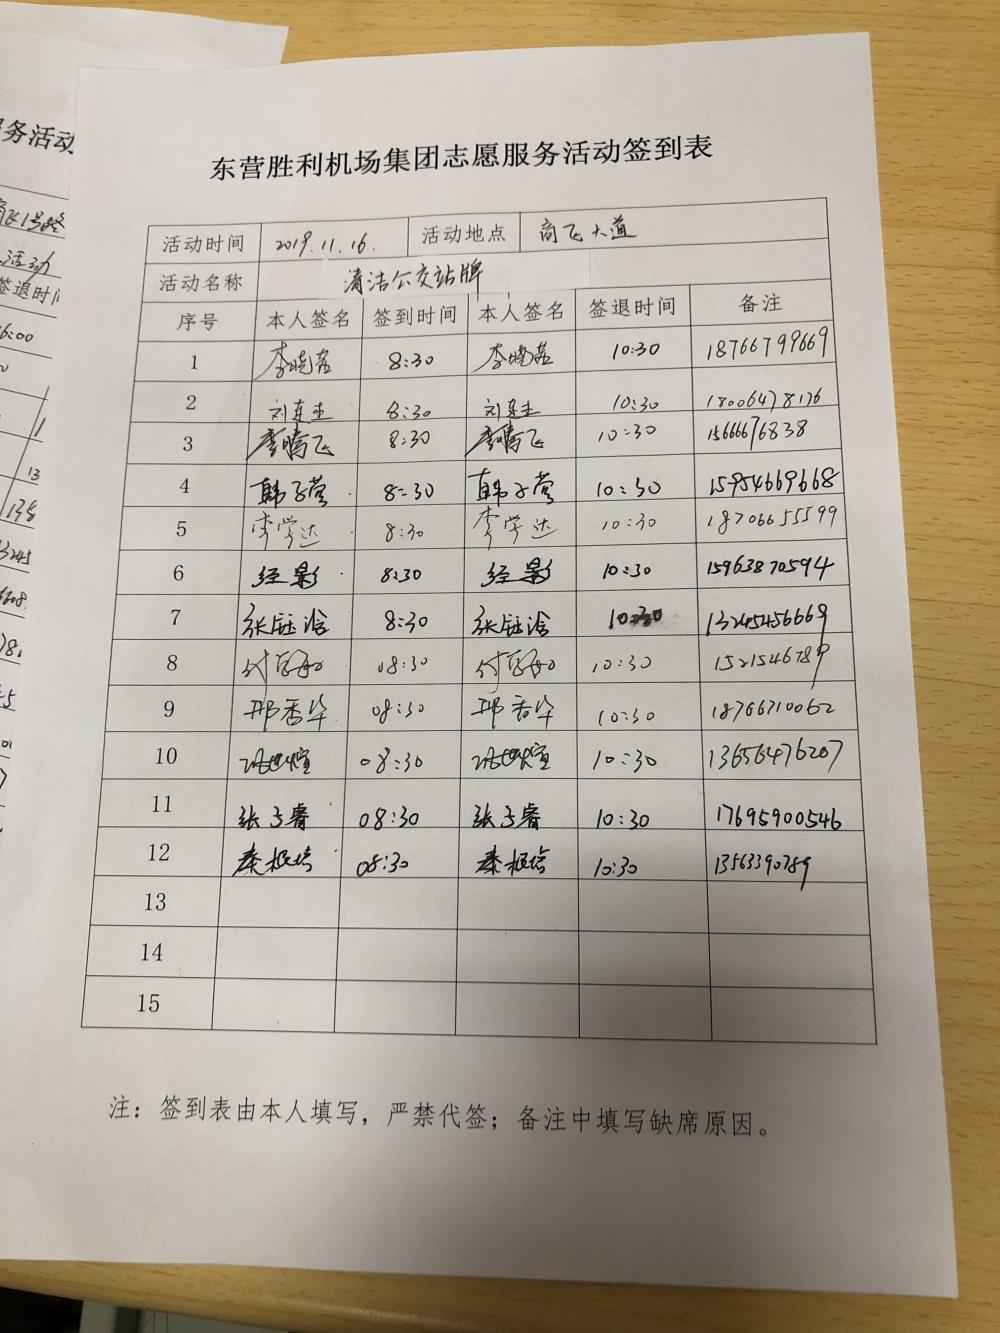 东营胜利机场集团志愿服务活动签到表
活动时间 2019.11.16. 活动地点 商飞大道
活动名称 清洁公交站牌
序号 本人签名 签到时间 本人签名 签退时间 备注
1 李晓茗 8:30 李晓茗 10:30 18766799669
2 刘东生 8:30 刘东生 10:30 18006478176
3 李腾飞 8:30 李腾飞 10:30 15666676838
4 韩子营 8:30 韩子营 10:30 15954669668
5 李学达 8:30 李学达 10:30 18706655599
6 经影 8:30 经影 10:30 15963870594
7 张钰涵 8:30 张钰涵 10:30 13245456669
8 08:30 10:30 1521546789
9 邢香华 08:30 邢香华 10:30 18766710062
10 08:30 10:30 13656476207
11 张子睿 08:30 张子睿 10:30 17695900546
12 秦 08:30 秦 10:30 13563390789
13
14
15
注：签到表由本人填写，严禁代签；备注中填写缺席原因。
务活动
活动
签退时间
6:00
13
138
13245